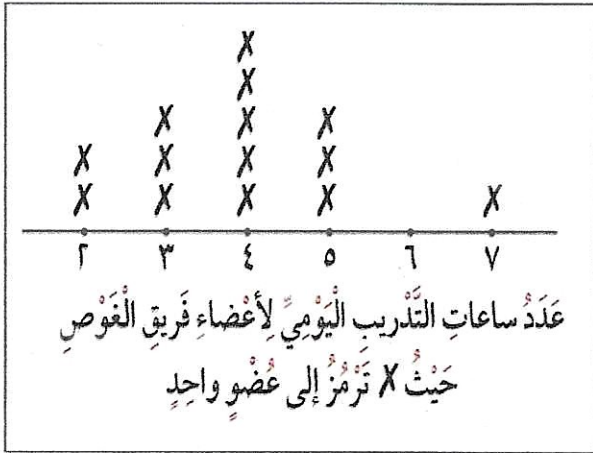 ٢ ٣ ٤ ٥ ٦ ٧
عَدَدُ ساعاتِ التَّدْريبِ الْيَوْمِيِّ لِأَعْضاءِ فَريقِ الْغَوْصِ
حَيْثُ X تَرْمُزُ إِلى عُضْوٍ واحِدٍ